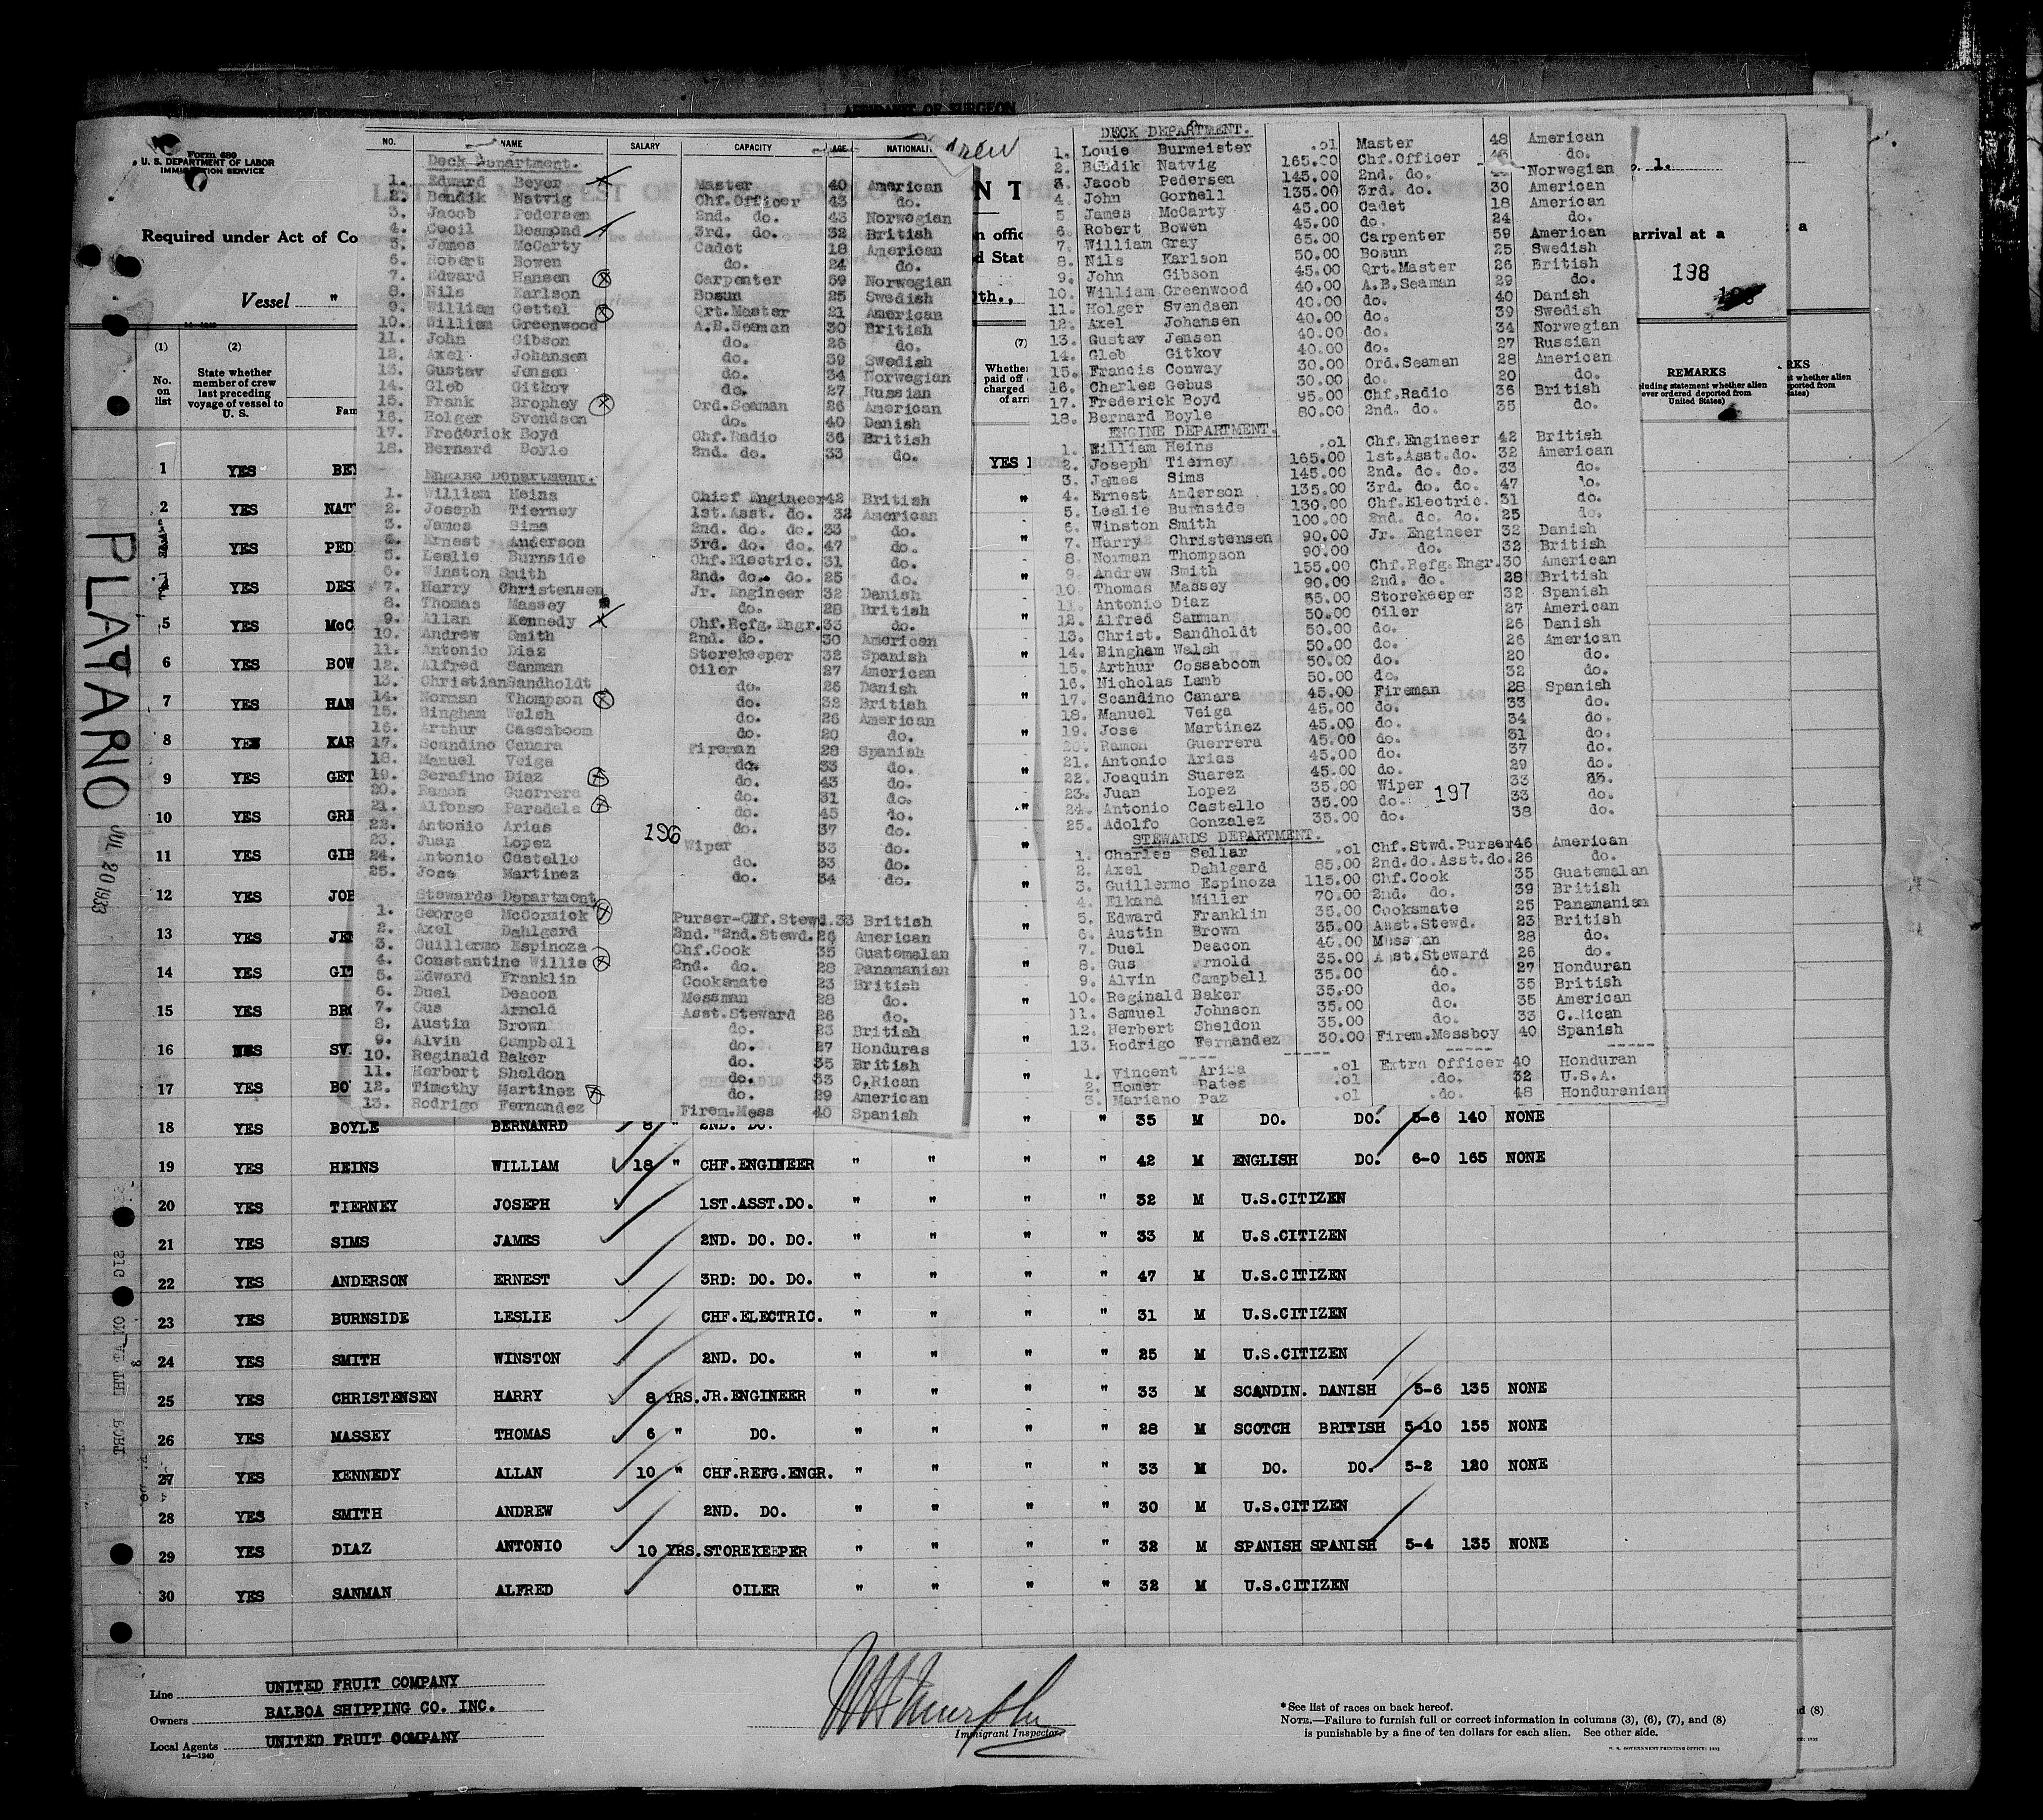 AFFIDAVIT OF SURGEON
Form 680
U. S. DEPARTMENT OF LABOR
IMMIGRATION SERVICE
Required under Act of Co
Vessel "
(1) (2)
No. on list
State whether member of crew last preceding voyage of vessel to U. S.
Fam
PLATANO
JUL 20 1933
1 YES BEY
2 YES NAT
3 YES PED
4 YES DES
5 YES McC
6 YES BOW
7 YES HAN
8 YES KAR
9 YES GET
10 YES GRE
11 YES GIB
12 YES JOH
13 YES JEN
14 YES GIT
15 YES BRO
16 YES SV
17 YES BO
NO. NAME SALARY CAPACITY AGE NATIONALI
Deck Department.
1. Edward Beyer Master 40 American
2. Bendik Natvig Chf.Officer 43 do.
3. Jacob Pedersen 2nd. do. 43 Norwegian
4. Cecil Desmond 3rd. do. 32 British
5. James McCarty Cadet 18 American
6. Robert Bowen do. 24 do.
7. Edward Hansen Carpenter 59 Norwegian
8. Nils Karlson Bosun 25 Swedish
9. William Gettel Qrt.Master 21 American
10. William Greenwood A.B.Seaman 30 British
11. John Gibson do. 26 do.
12. Axel Johansen do. 39 Swedish
13. Gustav Jensen do. 34 Norwegian
14. Gleb Gitkov do. 27 Russian
15. Frank Brophey Ord.Seaman 26 American
16. Holger Svendsen do. 40 Danish
17. Frederick Boyd Chf.Radio 36 British
18. Bernard Boyle 2nd. do. 33 do.
Engine Department.
1. William Heins Chief Engineer 42 British
2. Joseph Tierney 1st.Asst. do. 32 American
3. James Sims 2nd. do. do. 33 do.
4. Ernest Anderson 3rd. do. do. 47 do.
5. Leslie Burnside Chf.Electric. 31 do.
6. Winston Smith 2nd. do. do. 25 do.
7. Harry Christensen Jr. Engineer 32 Danish
8. Thomas Massey do. 28 British
9. Allan Kennedy Chf.Refg.Engr. 33 do.
10. Andrew Smith 2nd. do. 30 American
11. Antonio Diaz Storekeeper 32 Spanish
12. Alfred Sanman Oiler 27 American
13. Christian Sandholdt do. 26 Danish
14. Norman Thompson do. 32 British
15. Bingham Walsh do. 26 American
16. Arthur Cassaboom do. 20 do.
17. Scandino Canara Fireman 28 Spanish
18. Manuel Veiga do. 33 do.
19. Serafino Diaz do. 43 do.
20. Ramon Guerrera do. 31 do.
21. Alfonso Paradela do. 45 do.
22. Antonio Arias do. 37 do.
23. Juan Lopez Wiper 33 do.
24. Antonio Castello do. 33 do.
25. Jose Martinez do. 34 do.
196
Stewards Department
1. George McCormick Purser-Chf.Stewd. 33 British
2. Axel Dahlgard 2nd."2nd.Stewd. 26 American
3. Guillermo Espinoza Chf.Cook 35 Guatemalan
4. Constantine Willis 2nd. do. 28 Panamanian
5. Edward Franklin Cooksmate 23 British
6. Duel Deacon Messman 28 do.
7. Gus Arnold Asst.Steward 26 do.
8. Austin Brown do. 23 British
9. Alvin Campbell do. 27 Honduras
10. Reginald Baker do. 35 British
11. Herbert Sheldon do. 33 C.Rican
12. Timothy Martinez do. 29 American
13. Rodrigo Fernandez Firem.Mess 40 Spanish
DECK DEPARTMENT.
1. Louie Burmeister .01 Master 48 American
2. Bendik Natvig 165.00 Chf.Officer 46 do.
3. Jacob Pedersen 145.00 2nd. do. Norwegian
4. John Gornell 135.00 3rd. do. 30 American
5 James McCarty 45.00 Cadet 18 American
6. Robert Bowen 45.00 do. 24 do.
7. William Gray 65.00 Carpenter 59 American
8. Nils Karlson 50.00 Bosun 25 Swedish
9. John Gibson 45.00 Qrt.Master 26 British
10. William Greenwood 40.00 A.B.Seaman 29 do.
11. Holger Svendsen 40.00 do. 40 Danish
12. Axel Johansen 40.00 do. 39 Swedish
13. Gustav Jensen 40.00 do. 34 Norwegian
14. Gleb Gitkov 40.00 do. 27 Russian
15. Francis Conway 30.00 Ord.Seaman 28 American
16. Charles Gebus 30.00 do. 20 do.
17. Frederick Boyd 95.00 Chf.Radio 36 British
18. Bernard Boyle 80.00 2nd. do. 35 do.
ENGINE DEPARTMENT.
1. William Heins .01 Chf.Engineer 42 British
2. Joseph Tierney 165.00 1st.Asst.do. 32 American
3. James Sims 145.00 2nd. do. do. 33 do.
4. Ernest Anderson 135.00 3rd. do. do. 47 do.
5. Leslie Burnside 130.00 Chf.Electric. 31 do.
6. Winston Smith 100.00 2nd. do. do. 25 do.
7. Harry Christensen 90.00 Jr. Engineer 32 Danish
8. Norman Thompson 90.00 do. 32 British
9. Andrew Smith 155.00 Chf.Refg.Engr. 30 American
10. Thomas Massey 90.00 2nd. do. 28 British
11. Antonio Diaz 55.00 Storekeeper 32 Spanish
12. Alfred Sanman 50.00 Oiler 27 American
13. Christ. Sandholdt 50.00 do. 26 Danish
14. Bingham Walsh 50.00 do. 26 American
15. Arthur Cossaboom 50.00 do. 20 do.
16. Nicholas Lamb 50.00 do. 32 do.
17. Scandino Canara 45.00 Fireman 28 Spanish
18. Manuel Veiga 45.00 do. 33 do.
19. Jose Martinez 45.00 do. 34 do.
20. Ramon Guerrera 45.00 do. 31 do.
21. Antonio Arias 45.00 do. 37 do.
22. Joaquin Suarez 45.00 do. 29 do.
23. Juan Lopez 35.00 Wiper 33 do.
24. Antonio Castello 35.00 do. 33 do.
25. Adolfo Gonzalez 35.00 do. 38 do.
197
STEWARDS DEPARTMENT.
1. Charles Sellar .01 Chf.Stwd.Purser 46 American
2. Axel Dahlgard 85.00 2nd.do.Asst.do. 26 do.
3. Guillermo Espinoza 115.00 Chf.Cook 35 Guatemalan
4. Elkana Miller 70.00 2nd. do. 39 British
5. Edward Franklin 35.00 Cooksmate 25 Panamanian
6. Austin Brown 35.00 Asst.Stewd. 23 British
7. Duel Deacon 40.00 Messman 28 do.
8. Gus Arnold 35.00 Asst.Steward 26 do.
9. Alvin Campbell 35.00 do. 27 Honduran
10. Reginald Baker 35.00 do. 35 British
11. Samuel Johnson 35.00 do. 35 American
12. Herbert Sheldon 35.00 do. 33 C.Rican
13. Rodrigo Fernandez 30.00 Firem.Messboy 40 Spanish
1. Vincent Ariza .01 Extra Officer 40 Honduran
2. Homer Bates .01 .do. 32 U.S.A.
3. Mariano Paz .01 .do. 48 Hondurenian
arrival at a
198
REMARKS
18 YES BOYLE BERNANRD 8 " 2ND. DO. " " 35 M DO. DO. 5-6 140 NONE
19 YES HEINS WILLIAM 18 " CHF.ENGINEER " " " " 42 M ENGLISH DO. 6-0 165 NONE
20 YES TIERNEY JOSEPH 1ST.ASST.DO. " " " " 32 M U.S.CITIZEN
21 YES SIMS JAMES 2ND. DO. DO. " " " " 33 M U.S.CITIZEN
22 YES ANDERSON ERNEST 3RD: DO. DO. " " " " 47 M U.S.CITIZEN
23 YES BURNSIDE LESLIE CHF.ELECTRIC. " " " " 31 M U.S.CITIZEN
24 YES SMITH WINSTON 2ND. DO. " " " " 25 M U.S.CITIZEN
25 YES CHRISTENSEN HARRY 8 YRS. JR.ENGINEER " " " " 33 M SCANDIN. DANISH 5-6 135 NONE
26 YES MASSEY THOMAS 6 " DO. " " " " 28 M SCOTCH BRITISH 5-10 155 NONE
27 YES KENNEDY ALLAN 10 " CHF.REFG.ENGR. " " " " 33 M DO. DO. 5-2 120 NONE
28 YES SMITH ANDREW 2ND. DO. " " " " 30 M U.S.CITIZEN
29 YES DIAZ ANTONIO 10 YRS. STOREKEEPER " " " " 32 M SPANISH SPANISH 5-4 135 NONE
30 YES SANMAN ALFRED OILER " " " " 32 M U.S.CITIZEN
Line UNITED FRUIT COMPANY
Owners BALBOA SHIPPING CO. INC.
Local Agents UNITED FRUIT COMPANY
14—1240
Immigrant Inspector.
*See list of races on back hereof.
NOTE.—Failure to furnish full or correct information in columns (3), (6), (7), and (8)
is punishable by a fine of ten dollars for each alien. See other side.
U. S. GOVERNMENT PRINTING OFFICE: 1932